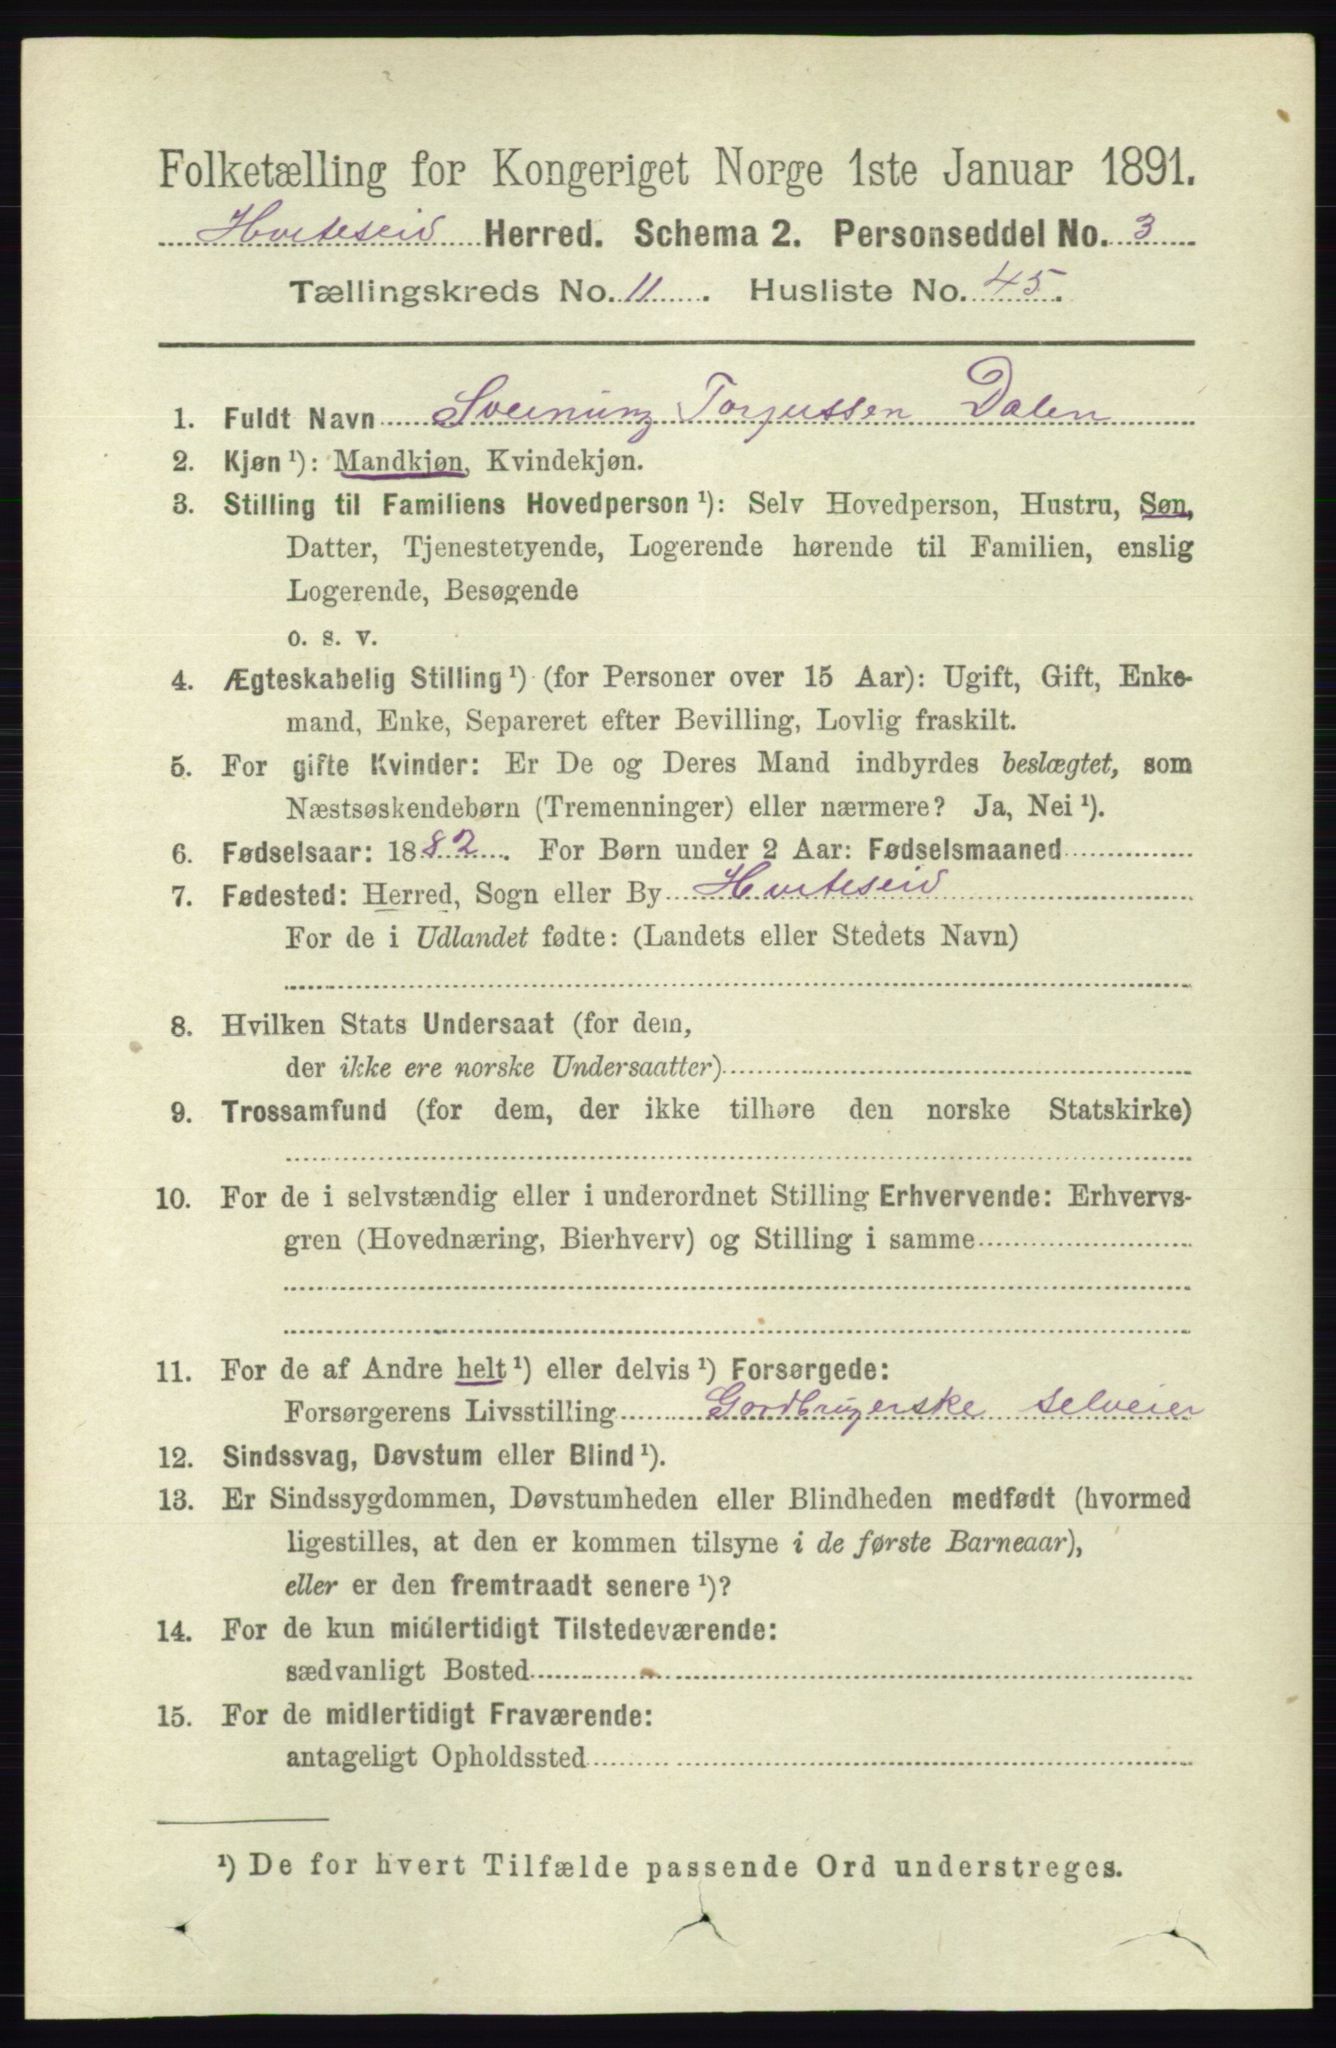 Folketælling for Kongeriget Norge 1ste Januar 1891.
Hviteseid Herred. Schema 2. Personseddel No. 3
Tællingskreds No. 11. Husliste No. 45.
1. Fuldt Navn Sveinung Torjussen Dalen
2. Kjøn ¹): Mandkjøn, Kvindekjøn.
3. Stilling til Familiens Hovedperson ¹): Selv Hovedperson, Hustru, Søn,
Datter, Tjenestetyende, Logerende hørende til Familien, enslig
Logerende, Besøgende
o. s. v.
4. Ægteskabelig Stilling ¹) (for Personer over 15 Aar): Ugift, Gift, Enke-
mand, Enke, Separeret efter Bevilling, Lovlig fraskilt.
5. For gifte Kvinder: Er De og Deres Mand indbyrdes beslægtet, som
Næstsøskendebørn (Tremenninger) eller nærmere? Ja, Nei ¹).
6. Fødselsaar: 1882. For Børn under 2 Aar: Fødselsmaaned
7. Fødested: Herred, Sogn eller By Hviteseid
For de i Udlandet fødte: (Landets eller Stedets Navn)
8. Hvilken Stats Undersaat (for dem,
der ikke ere norske Undersaatter)
9. Trossamfund (for dem, der ikke tilhøre den norske Statskirke)
10. For de i selvstændig eller i underordnet Stilling Erhvervende: Erhvervs-
gren (Hovednæring, Bierhverv) og Stilling i samme
11. For de af Andre helt ¹) eller delvis ¹) Forsørgede:
Forsørgerens Livsstilling Gordbrugerske selveier
12. Sindssvag, Døvstum eller Blind ¹).
13. Er Sindssygdommen, Døvstumheden eller Blindheden medfødt (hvormed
ligestilles, at den er kommen tilsyne i de første Barneaar),
eller er den fremtraadt senere ¹)?
14. For de kun midlertidigt Tilstedeværende:
sædvanligt Bosted
15. For de midlertidigt Fraværende:
antageligt Opholdssted
¹) De for hvert Tilfælde passende Ord understreges.